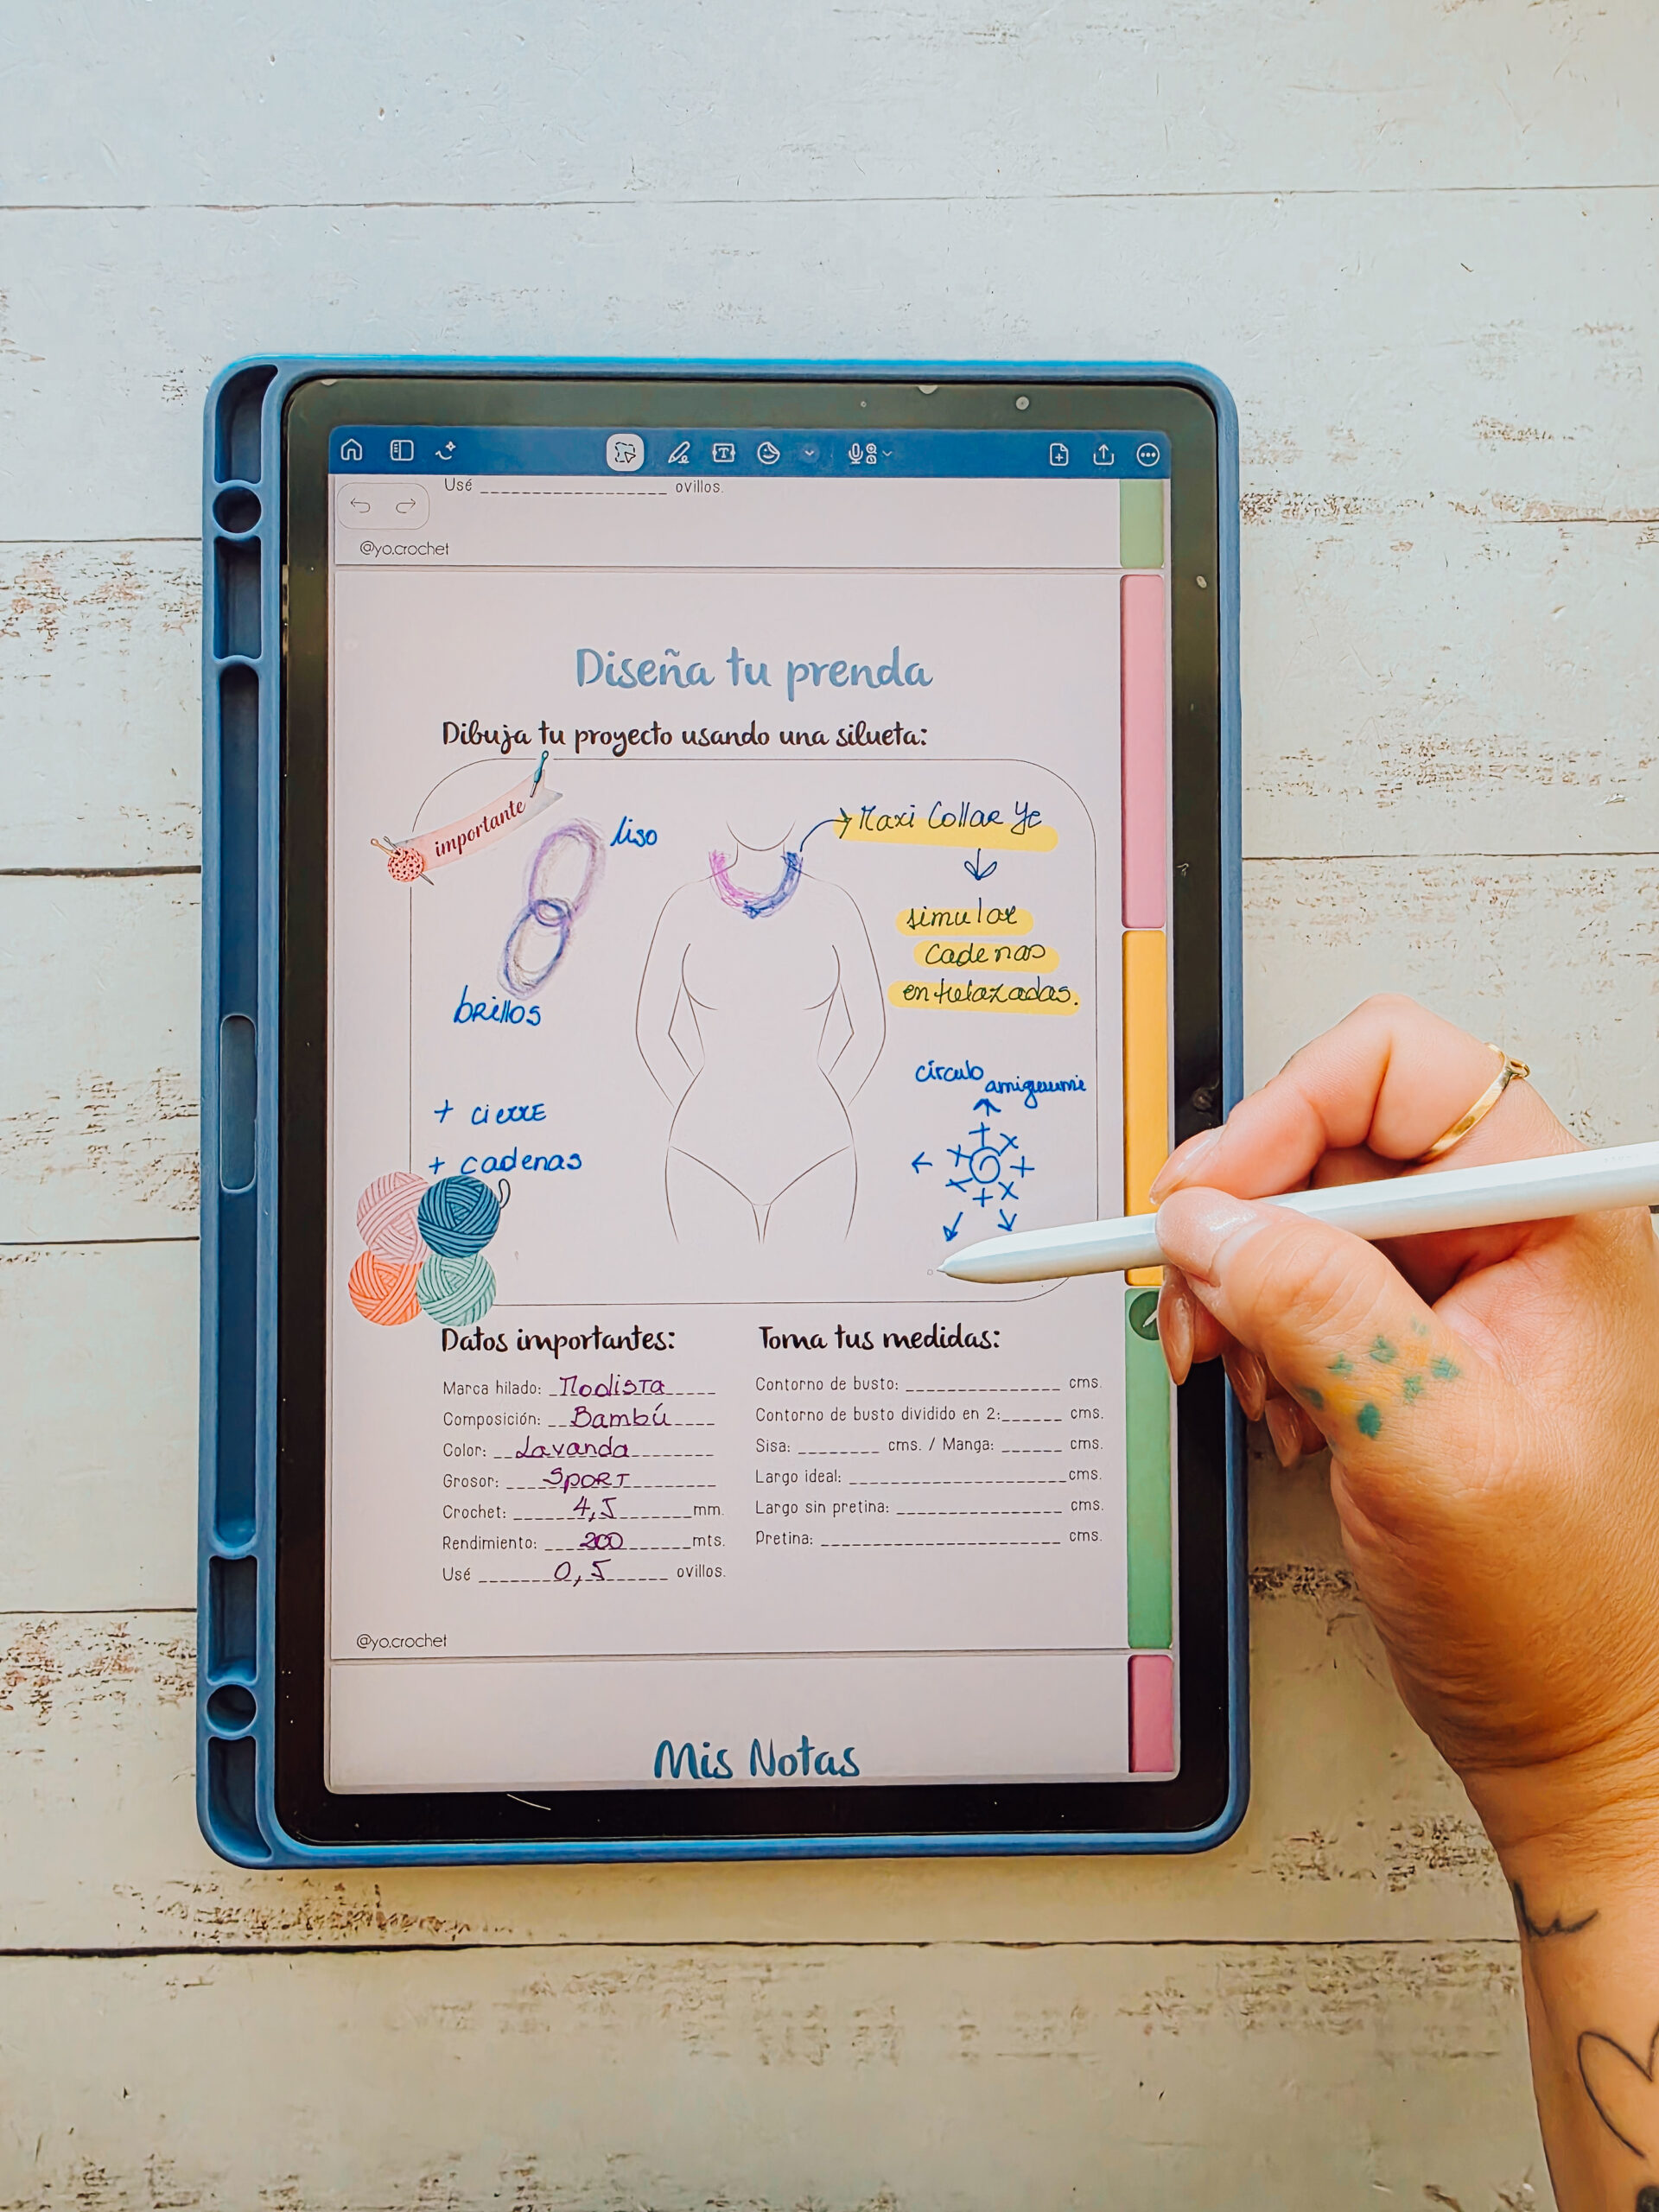 Usé _________________ ovillos.
@yo.crochet
Diseña tu prenda
Dibuja tu proyecto usando una silueta:
importante
liso
Maxi Collar Ye
simular
cadenas
entrelazadas.
brillos
círculo
amigurumi
+ cierre
+ cadenas
Datos importantes:
Marca hilado: Modista
Composición: Bambú
Color: Lavanda
Grosor: Sport
Crochet: 4,5 mm.
Rendimiento: 200 mts.
Usé 0,5 ovillos.
Toma tus medidas:
Contorno de busto: ______________ cms.
Contorno de busto dividido en 2:______ cms.
Sisa: ________ cms. / Manga: ______ cms.
Largo ideal: _____________________cms.
Largo sin pretina: ________________ cms.
Pretina: ______________________ cms.
@yo.crochet
Mis Notas